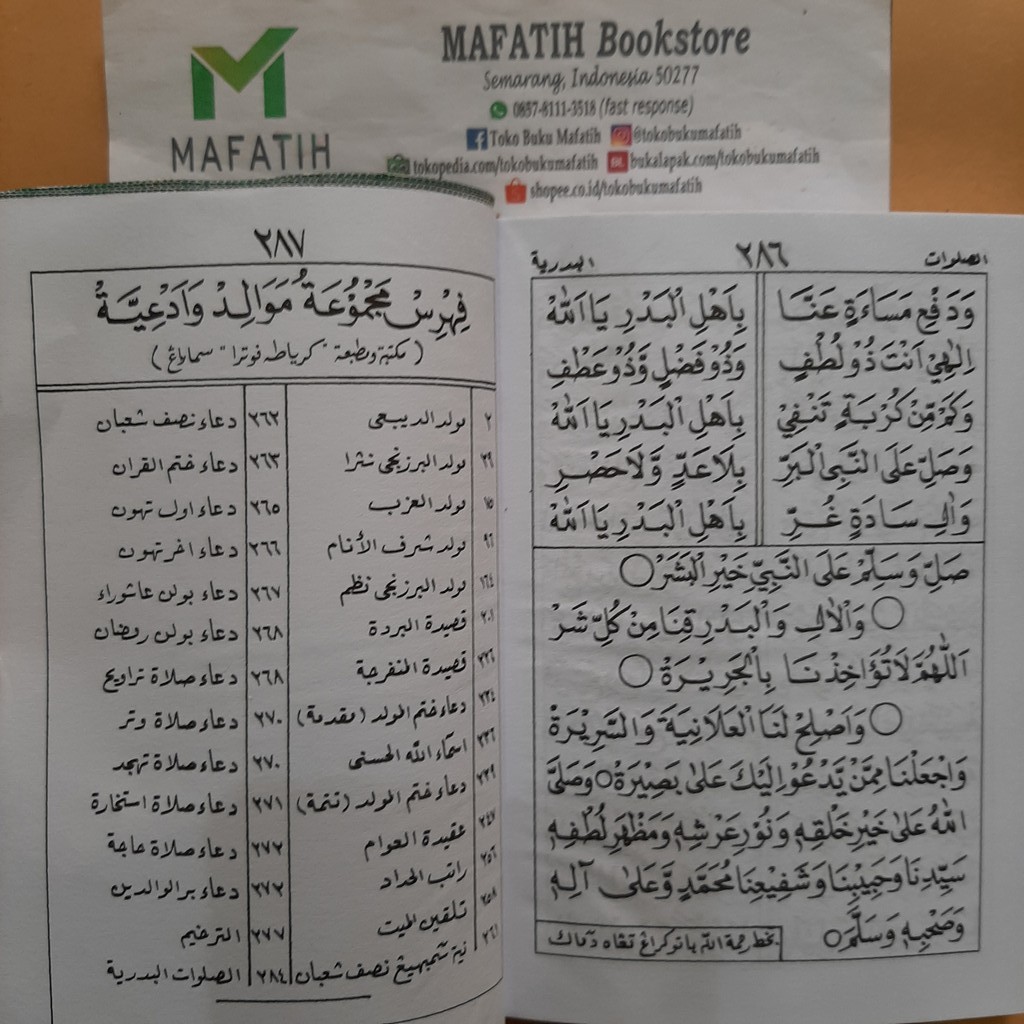 MAFATIH
MAFATIH Bookstore
Semarang, Indonesia 50277
0857-8111-3518 (fast response)
Toko Buku Mafatih @tokobukumafatih
tokopedia.com/tokobukumafatih bukalapak.com/tokobukumafatih
shopee.co.id/tokobukumafatih
الصلوات ٢٨٦ البدرية
وَدَفْعِ مَسَاءَةٍ عَنَّا بِاَهْلِ الْبَدْرِ يَا اَللهُ
اِلٰهِيْ اَنْتَ ذُوْ لُطْفٍ وَذُوْ فَضْلٍ وَّذُوْ عَطْفٍ
وَكَمْ مِّنْ كُرْبَةٍ تَنْفِيْ بِاَهْلِ الْبَدْرِ يَا اَللهُ
وَصَلِّ عَلَى النَّبِى الْبَرِّ بِلَا عَدٍّ وَّلَا حَصْرٍ
وَاٰلِ سَادَةٍ غُرٍّ بِاَهْلِ الْبَدْرِ يَا اَللهُ
صَلِّ وَسَلِّمْ عَلَى النَّبِيِّ خَيْرِ الْبَشَرْ ○
○ وَالْاٰلِ وَالْبَدْرِ قِنَا مِنْ كُلِّ شَرْ
اَللّٰهُمَّ لَا تُؤَاخِذْنَا بِالْجَرِيْرَةْ ○
○ وَاَصْلِحْ لَنَا الْعَلَانِيَةَ وَالسَّرِيْرَةْ
وَاجْعَلْنَا مِمَّنْ يَدْعُوْ اِلَيْكَ عَلٰى بَصِيْرَةْ ○ وَصَلَّى
اللهُ عَلٰى خَيْرِ خَلْقِهٖ وَنُوْرِ عَرْشِهٖ وَمَظْهَرِ لُطْفِهٖ
سَيِّدِنَا وَحَبِيْبِنَا وَشَفِيْعِنَا مُحَمَّدٍ وَّعَلٰى آلِهٖ
وَصَحْبِهٖ وَسَلَّمَ ○
بخط رحمة الله
٢٨٧
فِهْرِسْ مَجْمُوْعَةُ مَوَالِدْ وَاَدْعِيَّةْ
(مكتبة ومطبعة "كرياطه فوترا" سماراڠ)
مولد الديبعى ٢
مولد البرزنجى نثرا ٣٩
مولد العزب ٧٥
مولد شرف الأنام ٩٦
مولد البرزنجى نظم ١٦٤
قصيدة البردة ٢٠١
قصيدة المنفرجة ٢٢٦
دعاء ختم المولد (مقدمة) ٢٣٤
اسماء الله الحسنى ٢٣٦
دعاء ختم المولد (تتمة) ٢٣٩
عقيدة العوام ٢٤٧
راتب الحداد ٢٥٢
تلقين الميت ٢٥٨
نية نصف شعبان ٢٦١
دعاء نصف شعبان ٢٦٢
دعاء ختم القران ٢٦٣
دعاء اول تهون ٢٦٥
دعاء اخر تهون ٢٦٦
دعاء بولن عاشوراء ٢٦٧
دعاء بولن رمضان ٢٦٨
دعاء صلاة تراويح ٢٦٨
دعاء صلاة وتر ٢٧٠
دعاء صلاة تهجد ٢٧٠
دعاء صلاة استخارة ٢٧١
دعاء صلاة حاجة ٢٧٢
دعاء بر الوالدين ٢٧٢
الترخيم ٢٧٧
الصلوات البدرية ٢٨٤